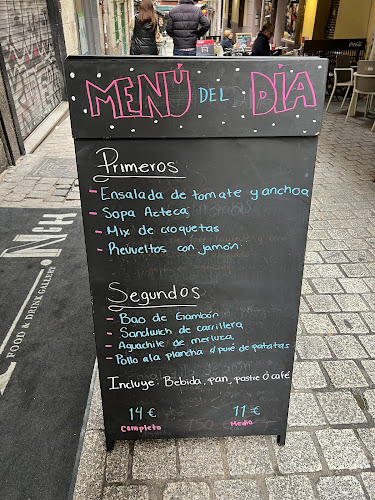 MENÚ DEL DÍA
Primeros:
- Ensalada de tomate y anchoa
- Sopa Azteca
- Mix de croquetas
- Revueltos con jamón
Segundos
- Bao de Gambón
- Sandwich de carrillera
- Aguachile de merluza
- Pollo a la plancha c/ puré de patatas
Incluye: Bebida, pan, postre ó café
14 € 11 €
Completo Medio
FOOD & DRINK GALLERY